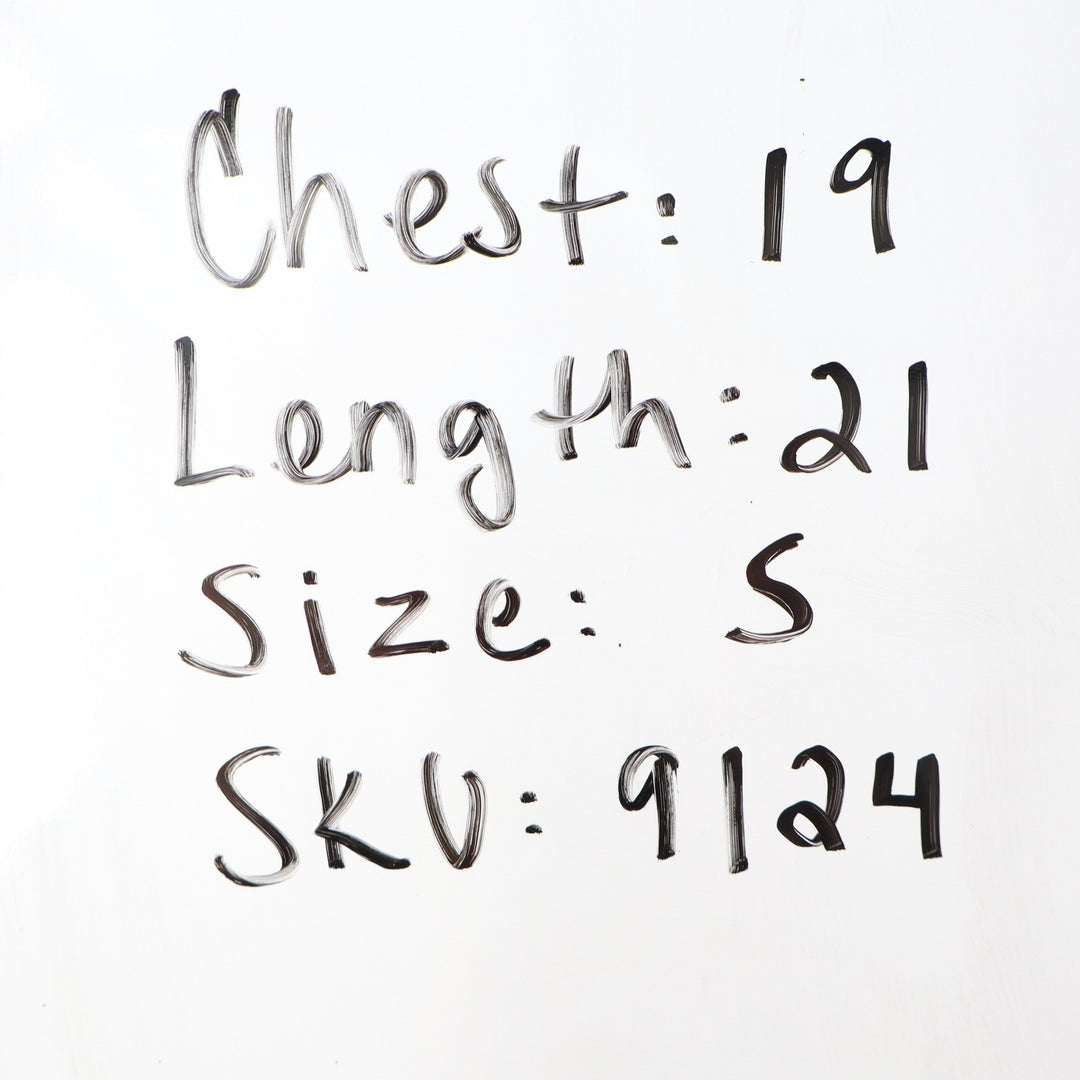 Chest: 19
Length: 21
Size: S
SKU: 9124